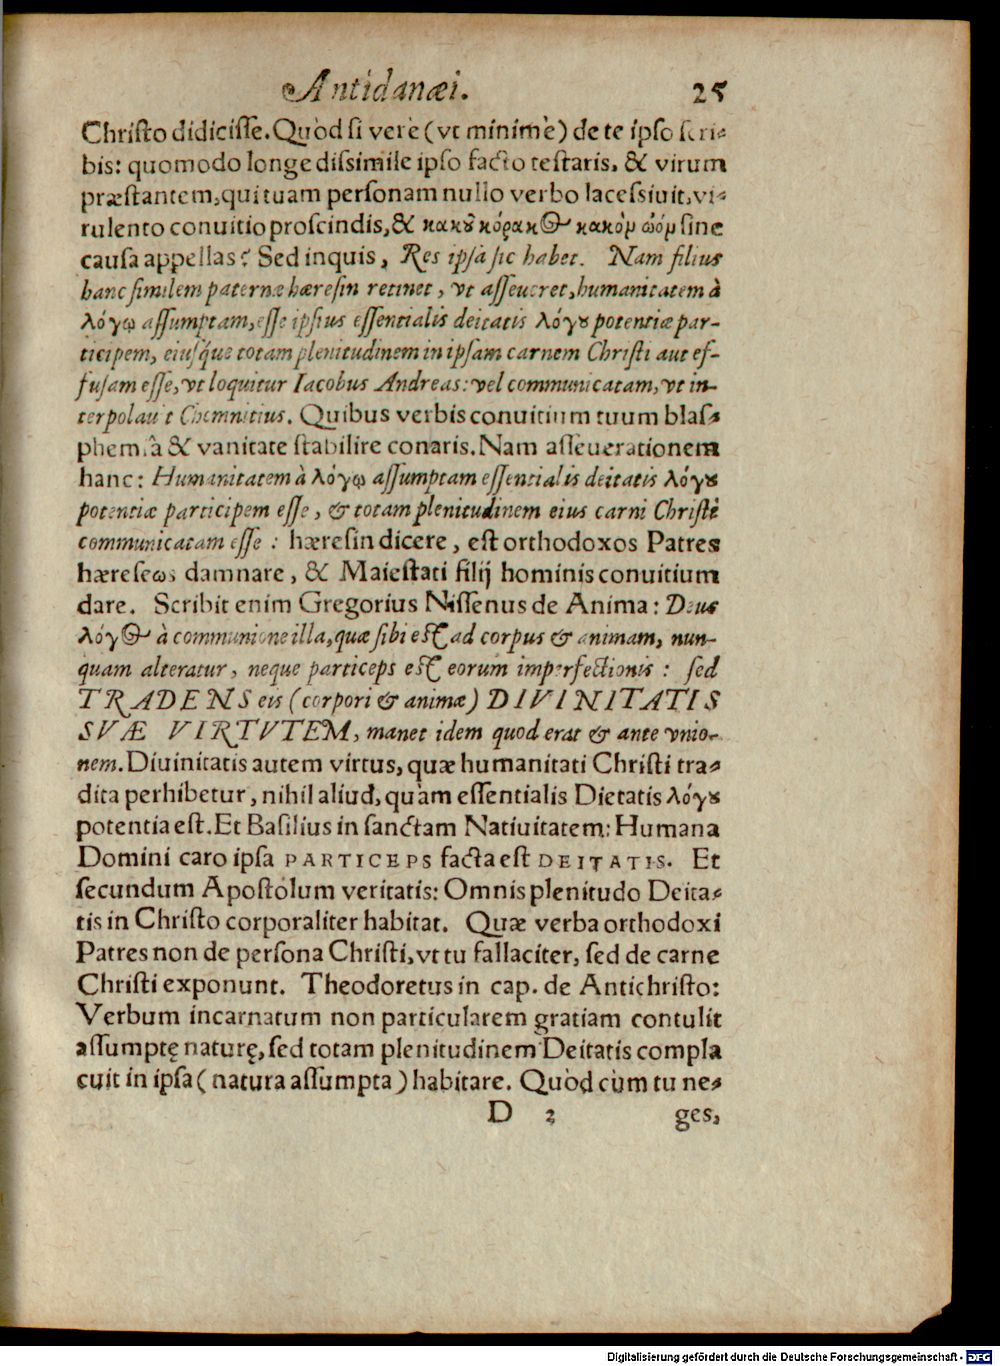 Antidanæi. 25
Christo didicisse. Quòd si verè (vt minimè) de te ipso scri-
bis: quomodo longe dissimile ipso facto testaris, & virum
præstantem, qui tuam personam nullo verbo lacessiuit, vi-
rulento conuitio proscindis, & κακοῦ κόρακος κακὸμ ὠόμ sine
causa appellas? Sed inquis, Res ipsa sic habet. Nam filius
hanc similem paternæ hæresin retinet, vt asseueret, humanitatem à
λόγῳ assumptam, esse ipsius essentialis deitatis λόγου potentiæ par-
ticipem, eiusq́ue totam plenitudinem in ipsam carnem Christi aut ef-
fusam esse, vt loquitur Iacobus Andreas: vel communicatam, vt in-
terpolauit Chemnitius. Quibus verbis conuitium tuum blas-
phemiâ & vanitate stabilire conaris. Nam asseuerationem
hanc: Humanitatem à λόγῳ assumptam essentialis deitatis λόγου
potentiæ participem esse, & totam plenitudinem eius carni Christi
communicatam esse: hæresin dicere, est orthodoxos Patres
hæreseως damnare, & Maiestati filij hominis conuitium
dare. Scribit enim Gregorius Nissenus de Anima: Deus
λόγος à communione illa, quæ sibi est ad corpus & animam, nun-
quam alteratur, neque particeps est eorum imperfectionis: sed
TRADENS eis (corpori & animæ) DIVINITATIS
SVÆ VIRTVTEM, manet idem quod erat & ante vnio-
nem. Diuinitatis autem virtus, quæ humanitati Christi tra-
dita perhibetur, nihil aliud, quàm essentialis Dietatis λόγου
potentia est. Et Basilius in sanctam Natiuitatem: Humana
Domini caro ipsa PARTICEPS facta est DEITATIS. Et
secundum Apostolum veritatis: Omnis plenitudo Deita-
tis in Christo corporaliter habitat. Quæ verba orthodoxi
Patres non de persona Christi, vt tu fallaciter, sed de carne
Christi exponunt. Theodoretus in cap. de Antichristo:
Verbum incarnatum non particularem gratiam contulit
assumptę naturę, sed totam plenitudinem Deitatis compla
cuit in ipsa (natura assumpta) habitare. Quòd cùm tu ne-
D 2 ges,
Digitalisierung gefördert durch die Deutsche Forschungsgemeinschaft - DFG